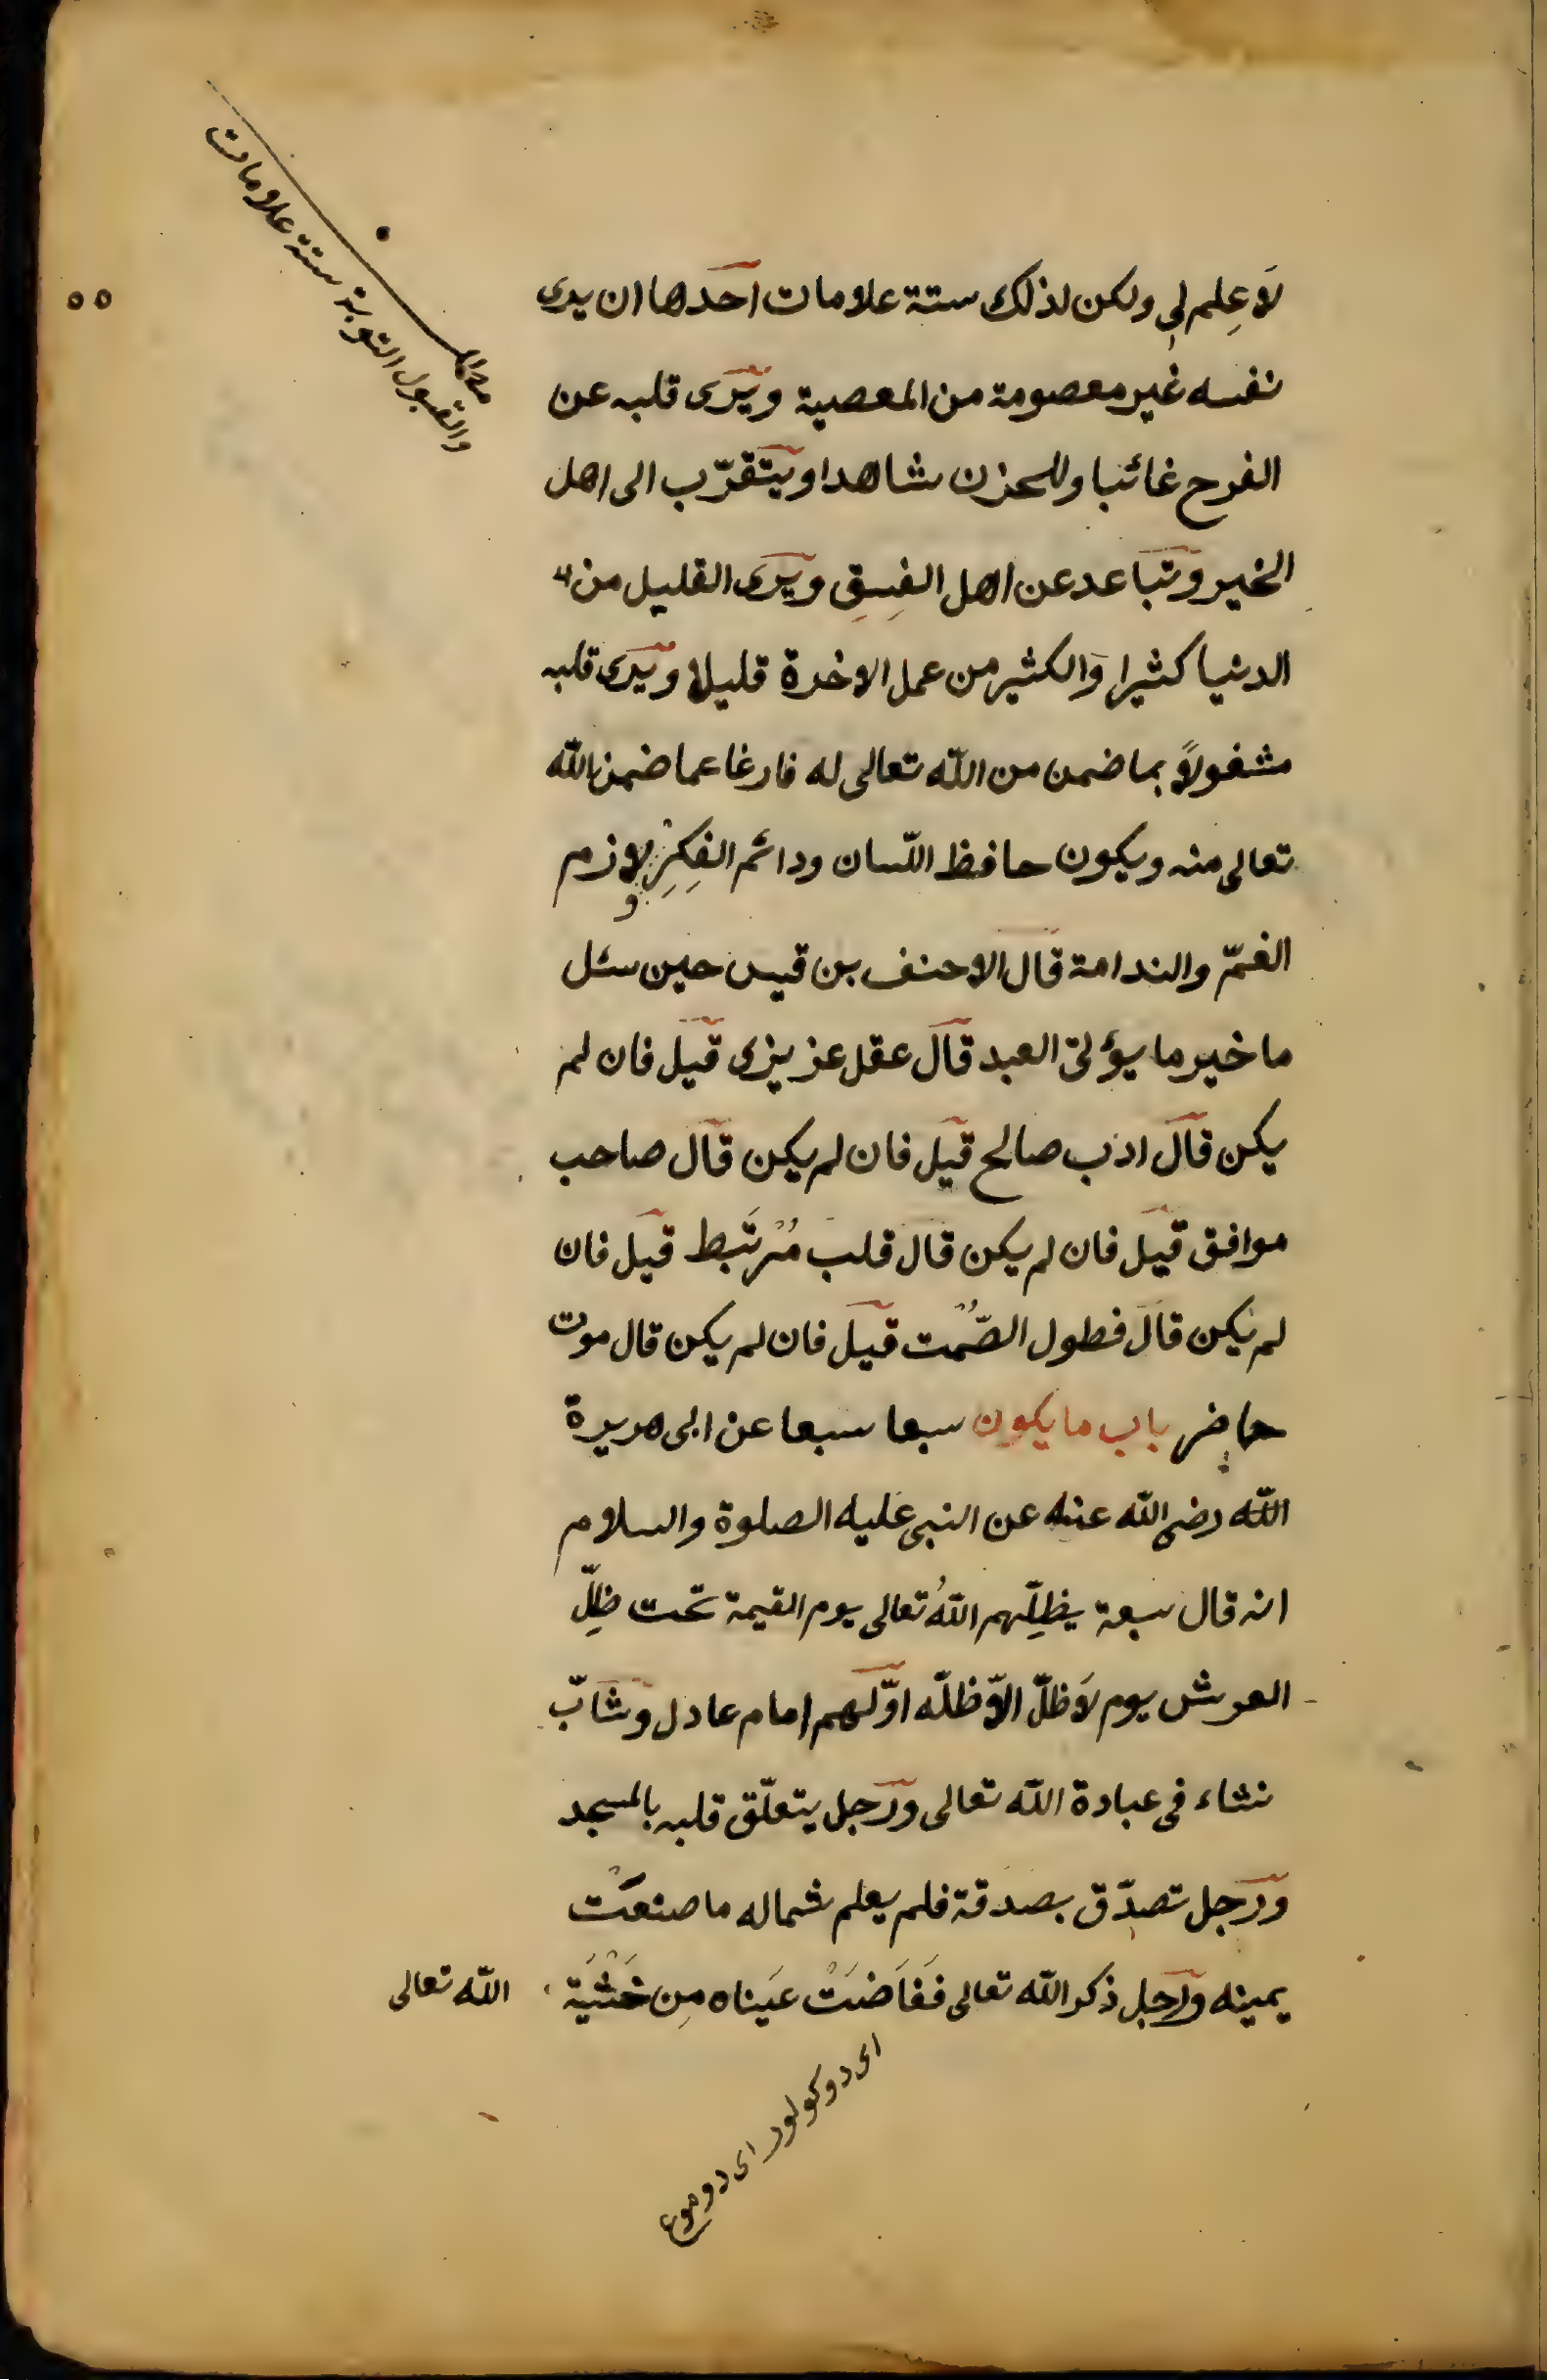 لَا عِلم لي ولكن لذلك ستة علامات احدها ان يرى
نفسه غير معصومة من المعصية ويرى قلبه عن
الفرح غائبا وللحزن شاهدا ويتقرّب الى اهل
الخير وتباعد عن اهل الفِسِق ويرى القليل من
الدنيا كثيرا والكثير من عمل الاخرة قليلا ويرى قلبه
مشغولاً بما ضمن من الله تعالى له فارغا عما ضمن الله
تعالى منه ويكون حافظ اللّسان ودائم الفِكِرِ و لازم
الغمّ والندامة قال الاحنف بن قيس حين سئل
ما خير ما يؤتى العبد قال عقل عزيزى قيل فان لم
يكن قال ادب صالح قيل فان لم يكن قال صاحب
موافق قيل فان لم يكن قال قلب مُرتَبط قيل فان
لم يكن قال فطول الصّمت قيل فان لم يكن قال موت
حاضر باب ما يكون سبعا سبعا عن ابى هريرة
الله رضى الله عنه عن النبى عليه الصلوة والسلام
انه قال سبعة يظلِّهم اللهُ تعالى يوم القيمة تحت ظِلّ
العرش يوم لَا ظلّ الاّ ظلّه اوّلهم امام عادل وشابّ
نشاء فى عبادة الله تعالى ورجل يتعلّق قلبه بالمسجد
ورجل تصدّق بصدقة فلم يعلم شماله ما صنعتْ
يمينه ورجل ذكر الله تعالى فَفَاضَتْ عَيناه مِن خَشْيَة الله تعالى
والقبول التوبة ستة علامات
اى دوكولور اى دموع
٥٥